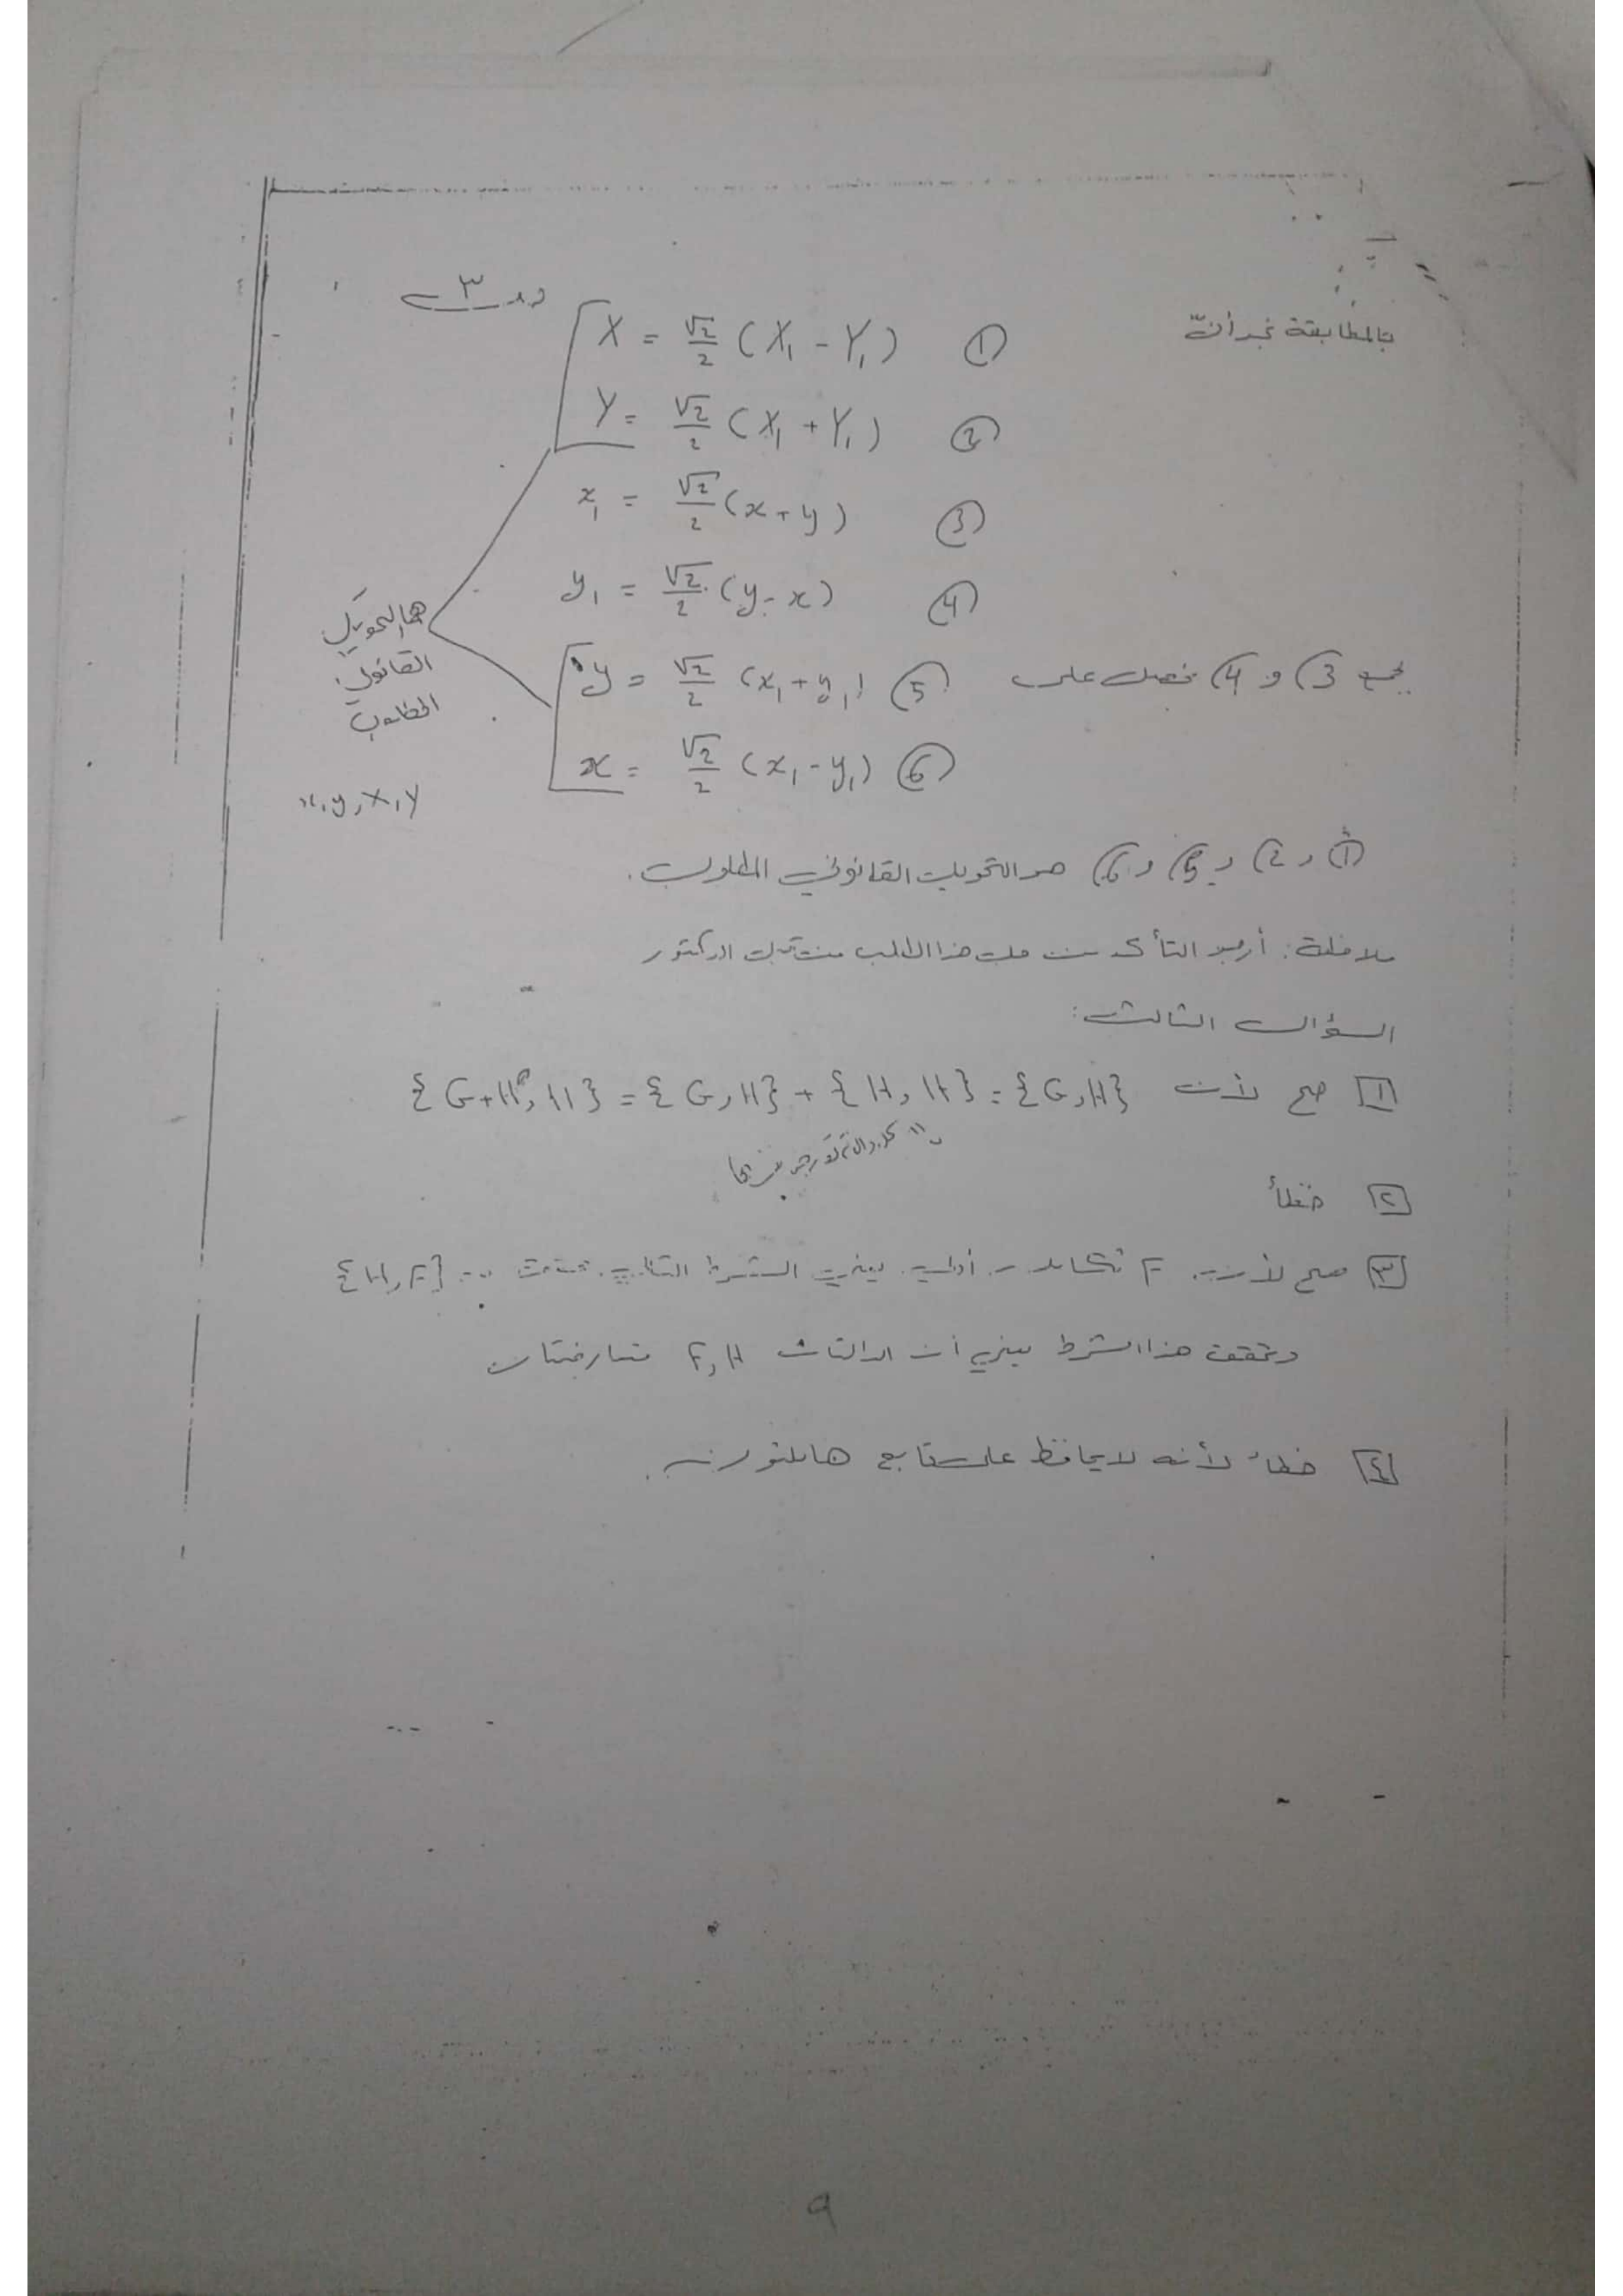 بالمطابقة نجد أنّ
X = √2/2 (X₁ - Y₁) ①
Y = √2/2 (X₁ + Y₁) ②
x₁ = √2/2 (x + y) ③
y₁ = √2/2 (y - x) ④
بجمع 3 و 4 نحصل على
y = √2/2 (x₁ + y₁) ⑤
x = √2/2 (x₁ - y₁) ⑥
هما التحويل
القانوني
المطلوب
x, y, X, Y
① و 2 و 5 و 6 هو التحويل القانوني المطلوب.
ملاحظة: أرجو التأكد من حل هذا الطلب من قبل الدكتور
السؤال الثالث:
[١] صح لأن {G+H, H} = {G, H} + {H, H} = {G, H}
[٢] خطأ
[٣] صح لأن F تكامل أولي يعني الشرط التالي محقق {H, F}
وتحقق هذا الشرط يعني أن الدالتان F, H
[٤] خطأ لأنه لا يحافظ على تابع هاملتون.
9